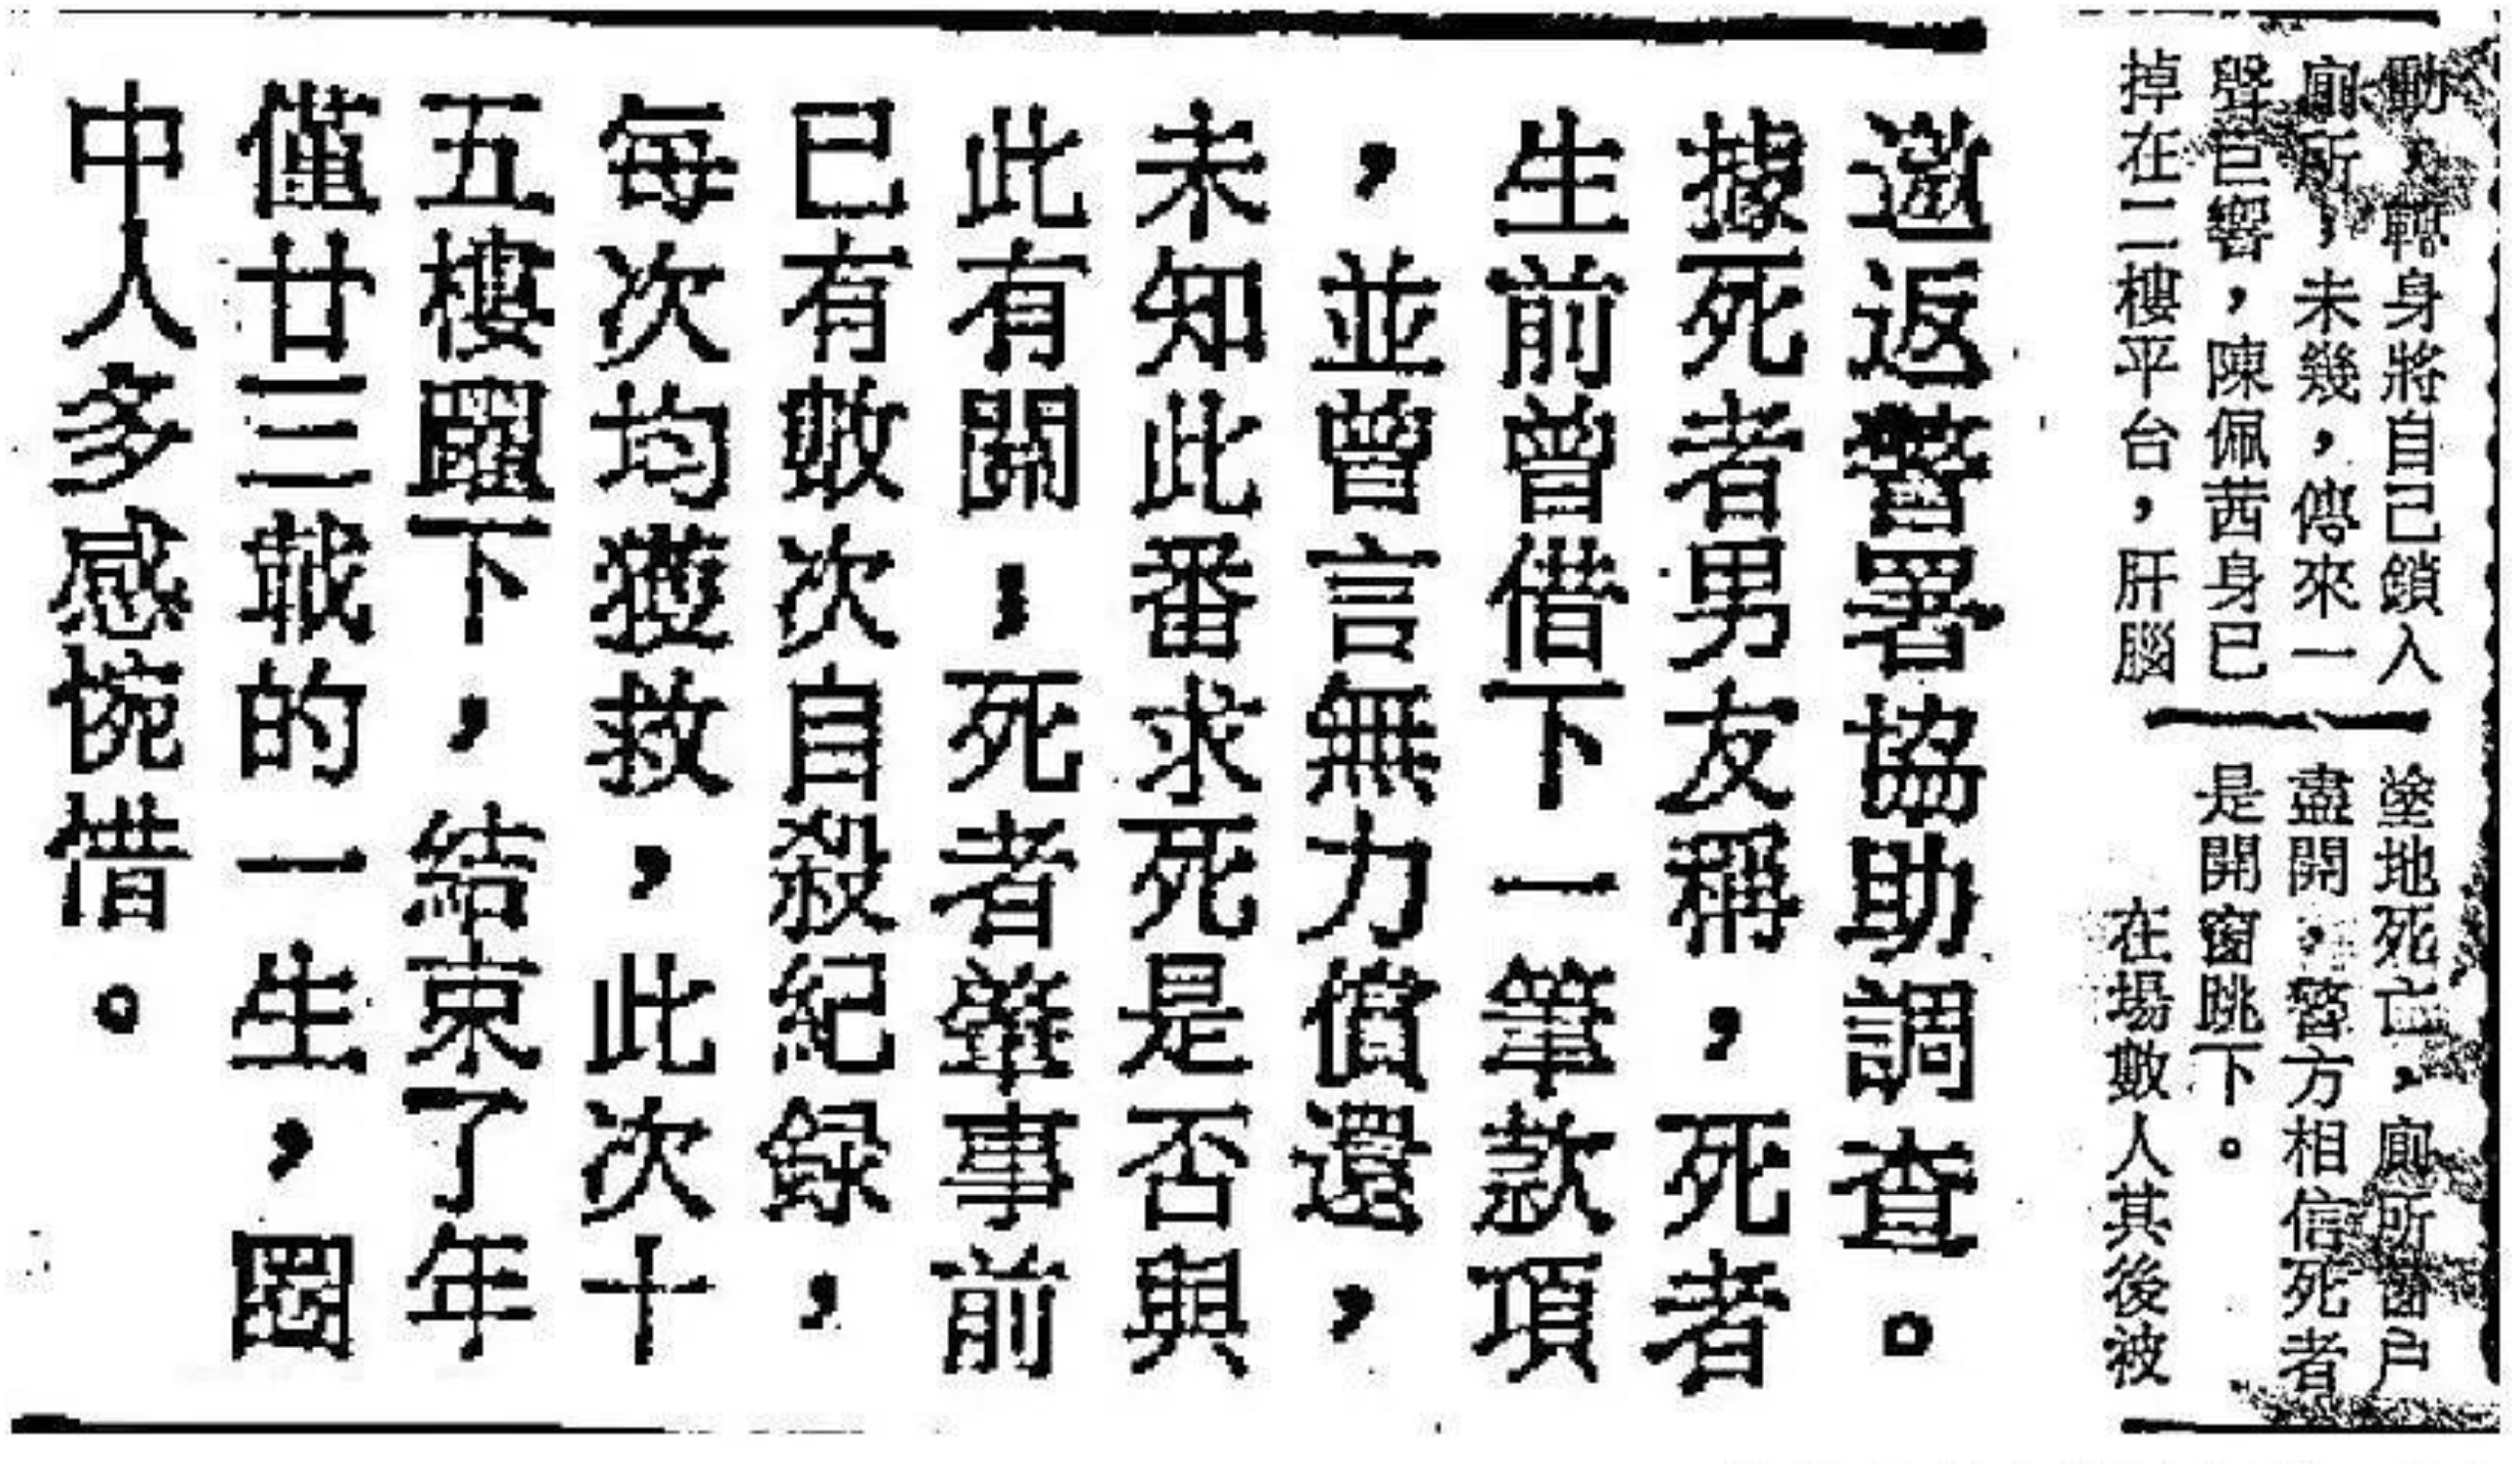 動，轉身將自己鎖入
廁所，未幾，傳來一
聲巨響，陳佩茜身已
掉在二樓平台，肝腦
塗地死亡，廁所窗戶
盡開，警方相信死者
是開窗跳下。
在場數人其後被
邀返警署協助調查。
據死者男友稱，死者
生前曾借下一筆款項
，並曾言無力償還，
未知此番求死是否與
此有關；死者肇事前
已有數次自殺紀録，
每次均獲救，此次十
五樓躍下，結束了年
僅廿三載的一生，圈
中人多感惋惜。